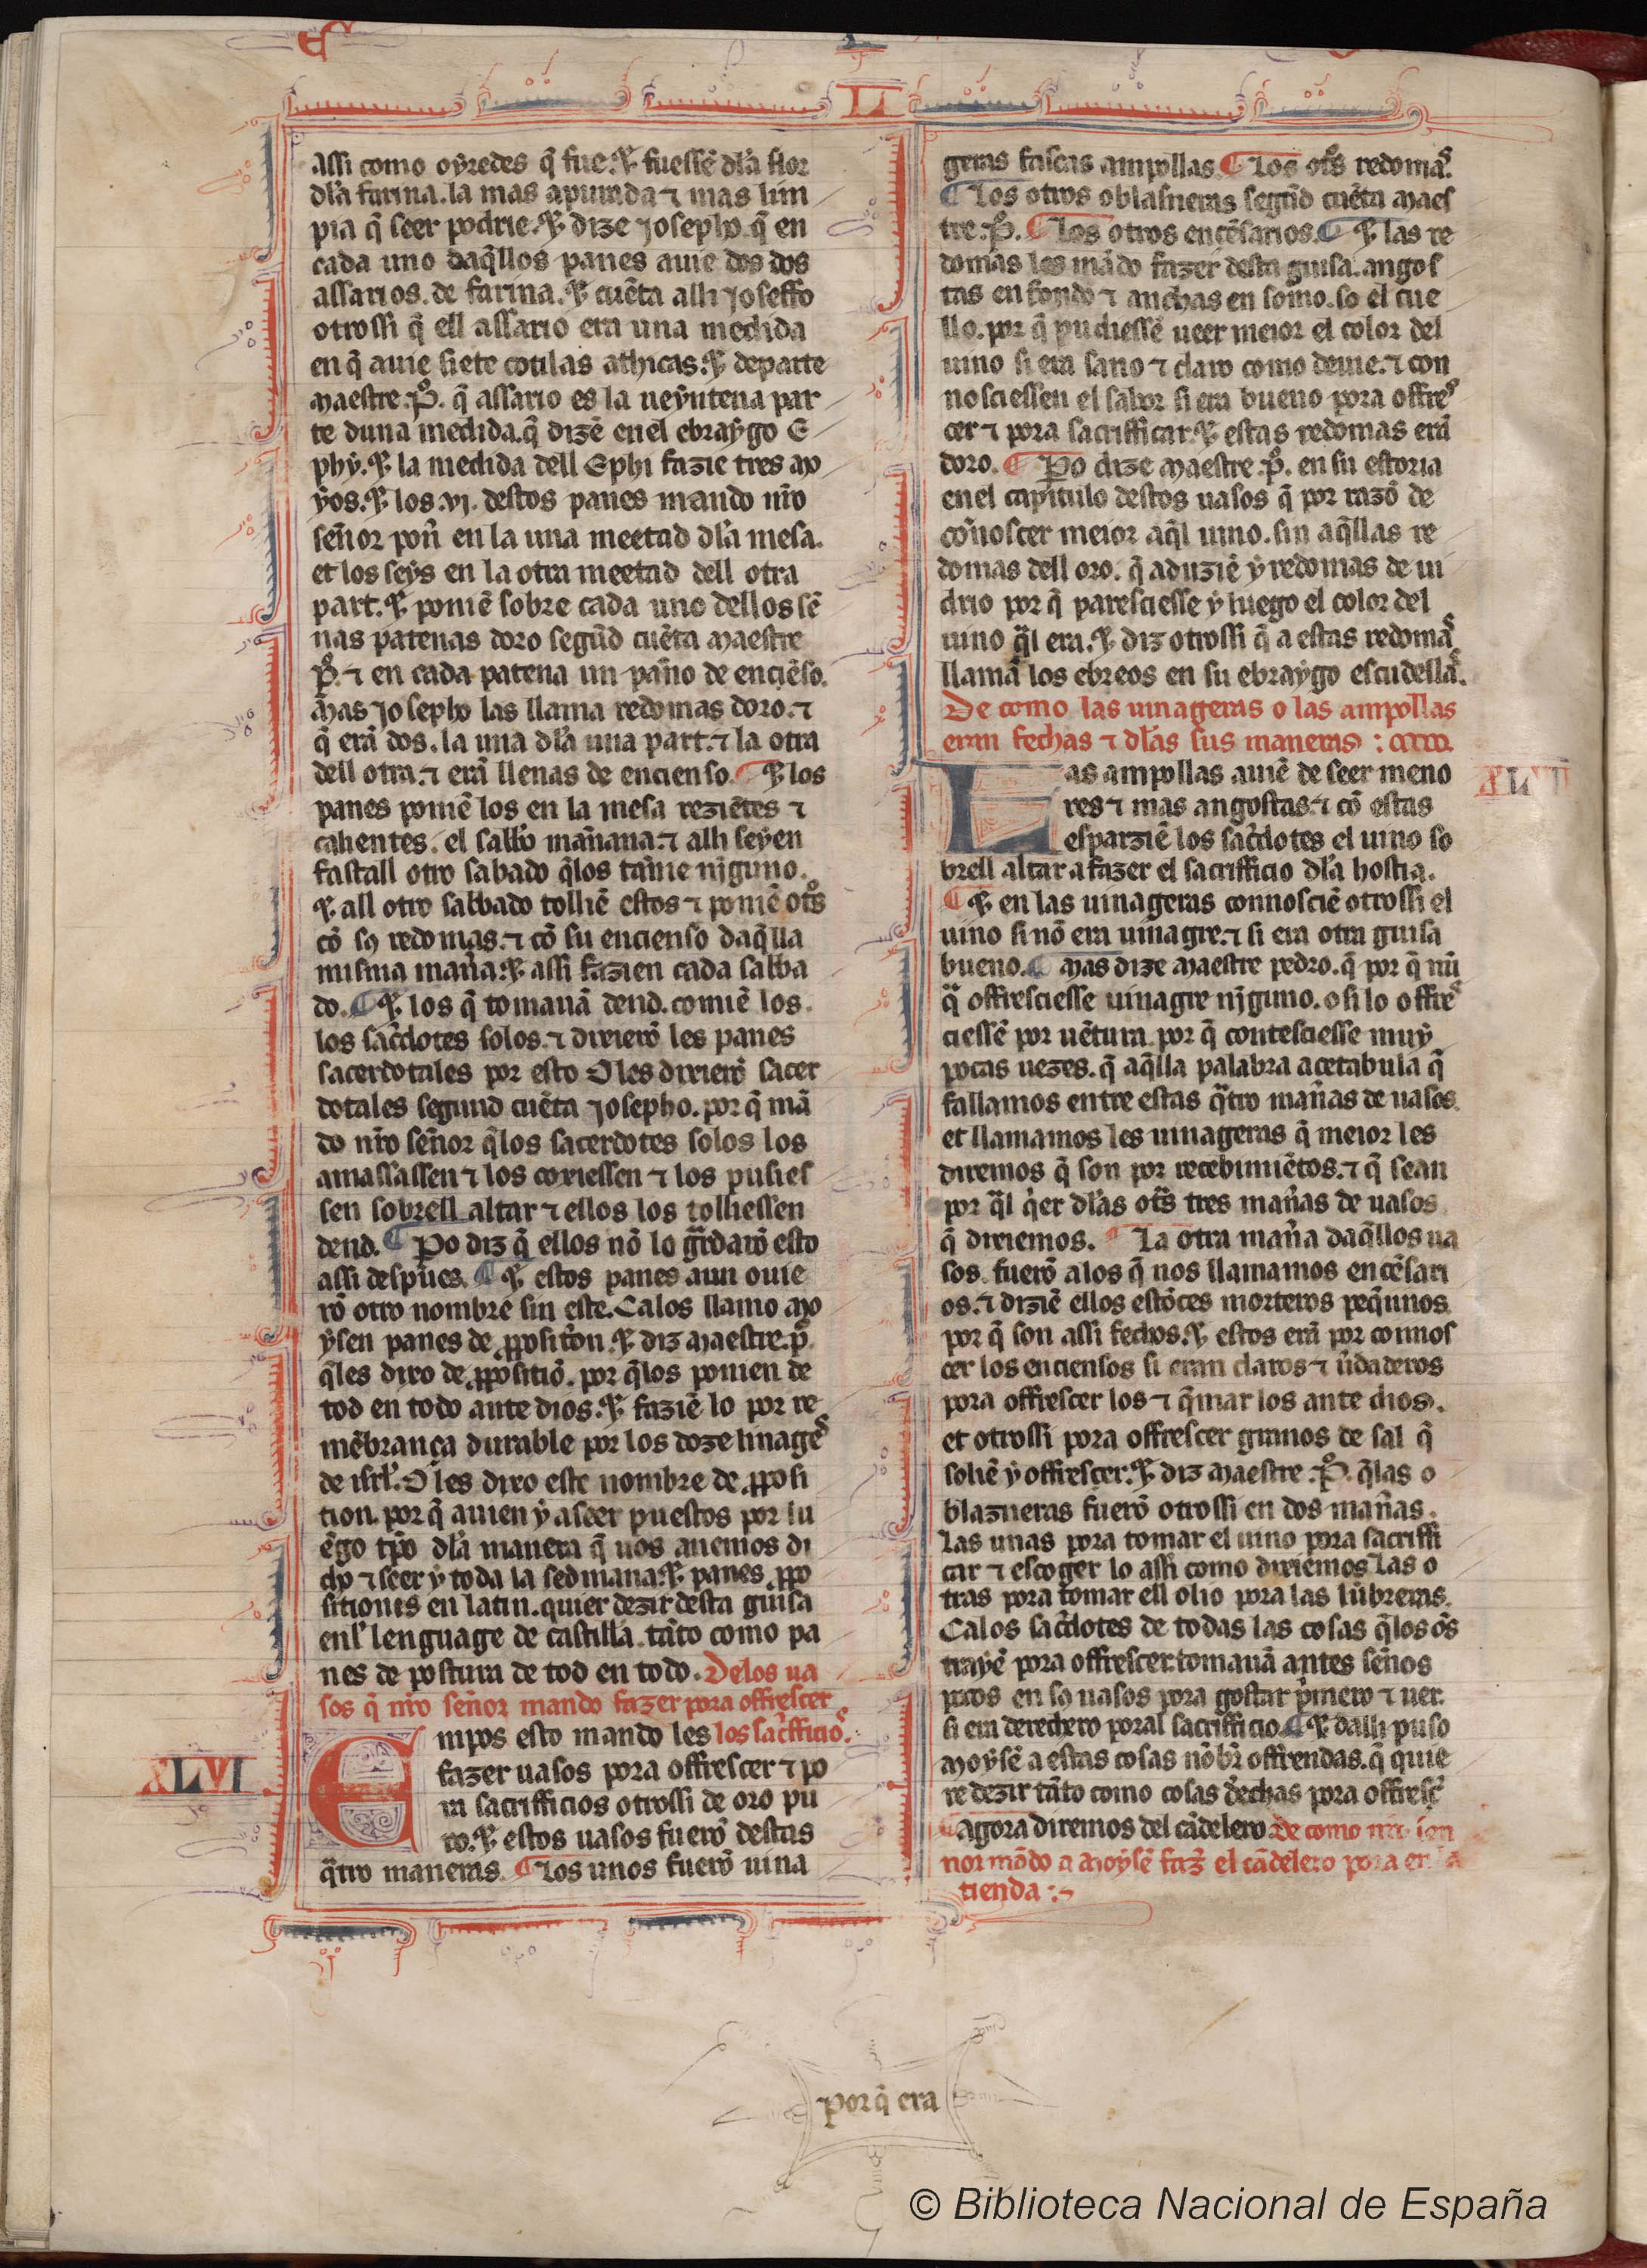 L
assi como oyredes q̃ fue. ⁊ fuessẽ dl̃a flor
dl̃a farina. la mas apurada ⁊ mas lim
pia q̃ seer podrie. ⁊ dize josepho. q̃ en
cada uno daq̃llos panes auie dos dos
assarios. de farina. ⁊ cuẽta alli joseffo
otrossi q̃ ell assario era una medida
en q̃ auie siete cotilas athicas. ⁊ departe
maestre .P̊. q̃ assario es la ueyntena par
te duna medida. q̃ dizẽ en el ebraygo E
phy. ⁊ la medida dell Ephi fazie tres mo
yos. ⁊ los .vj. destos panes mando nr̃o
señor pon̉ en la una meetad dl̃a mesa.
et los seys en la otra meetad dell otra
part. ⁊ poniẽ sobre cada uno dellos sẽ
nas patenas doro segũd cuẽta maestre
p̊. ⁊ en cada patena un pan̄o de enciẽso.
mas josepho las llama redomas doro. ⁊
q̃ erã dos. la una dl̃a una part. ⁊ la otra
dell otra. ⁊ erã llenas de encienso. ¶ ⁊ los
panes poniẽ los en la mesa reziẽtes ⁊
calientes. el sabb̃o man̄ana. ⁊ alli seyen
fastall otro sabado q̃los tan̉ie nĩguno.
⁊ all otro sabbado tolliẽ estos ⁊ poniẽ ot̊s
cõ sꝯ redomas. ⁊ cõ su encienso daq̃lla
misma man̉a. ⁊ assi fazien cada sabba
do. ¶ ⁊ los q̃ tomauã dend. comiẽ los
los sac̉dotes solos. ⁊ dixierõ les panes
sacerdotales por esto O les dixierõ sacer
dotales segund cuẽta josepho. por q̃ mã
do nr̃o señor q̃los sacerdotes solos los
amassassen ⁊ los coxiessen ⁊ los pusies
sen sobrell altar ⁊ ellos los tolliessen
dend. ¶ P̱o diz q̃ ellos nõ lo gͣrdarõ esto
assi despues. ¶ ⁊ estos panes aun ouie
rõ otro nombre sin este. Ca los llamo mo
ysen panes de ꝓposition. ⁊ diz maestre .p̊.
q̃les dixo de ꝓpositiõ. por q̃los ponien de
tod en todo ante dios. ⁊ faziẽ lo por re
mẽbrança durable por los doze linageˢ
de isrl̃. O les dixo este nombre de ꝓposi
tion. por q̃ auien y a seer puestos por lu
ẽgo tp̃o dl̃a manera q̃ uos auemos di
cho ⁊ seer y toda la sedmana. ⁊ panes ꝓpo
sitionis en latin. quier dezir desta guisa
enl̉ lenguage de castilla. tãto como pa
nes de postura de tod en todo. Delos ua
sos q̃ nr̃o señor mando fazer pora offrescer
los sac̉fficioˢ.
Empos esto mando les
fazer uasos pora offrescer ⁊ po
ra sacrifficios otrossi de oro pu
ro. ⁊ estos uasos fuerõ destas
qͣtro maneras. ¶ Los unos fuerõ uina
XLVI
geras fascas ampollas. ¶ Los ot̊s redomaˢ.
¶ Los otros oblasneras segũd cuẽta maes
tre .P̊. ¶ Los otros encẽsarios. ¶ ⁊ las re
domas les mãdo fazer desta guisa. angos
tas en fondo ⁊ anchas en somo. so el cue
llo. por q̃ pudiessẽ ueer meior el color del
uino si era sano ⁊ claro como deuie. ⁊ con
nosciessen el sabor si era bueno pora offreˢ
cer ⁊ pora sacrifficar. ⁊ estas redomas erã
doro. ¶ P̱o dize maestre .p̊. en su estoria
en el capitulo destos uasos q̃ por razõ de
con̄oscer meior aq̃l uino. sin aq̃llas re
domas dell oro. q̃ aduziẽ y redomas de ui
drio por q̃ paresciesse y luego el color del
uino qͣl era. ⁊ diz otrossi q̃ a estas redomaˢ
llamã los ebreos en su ebraygo escudellaˢ.
De como las uinageras o las ampollas
eran fechas ⁊ dl̃as sus maneras :
Las ampollas auiẽ de seer meno
res ⁊ mas angostas. ⁊ cõ estas
esparziẽ los sac̉dotes el uino so
brell altar a fazer el sacrifficio dl̃a hostia.
¶ ⁊ en las uinageras connosciẽ otrossi el
uino si nõ era uinagre. ⁊ si era otra guisa
bueno. ¶ mas dize maestre pedro. q̃ por q̃ nũ
qͣ offresciesse uinagre nĩguno. o si lo offreˢ
ciessẽ por uẽtura. por q̃ contesciesse muy
pocas uezes. q̃ aq̃lla palabra acetabula q̃
fallamos entre estas qͣtro man̉as de uasos.
et llamamos les uinageras q̃ meior les
diremos q̃ son por recebimiẽtos. ⁊ q̃ sean
por qͣl q̉er dl̃as ot̃s tres man̉as de uasos
q̃ dixiemos. ¶ La otra man̉a daq̃llos ua
sos. fuerõ a los q̃ nos llamamos encẽsari
os. ⁊ diziẽ ellos estõces morteros peq̃nnos
por q̃ son assi fechos. ⁊ estos erã por connos
cer los enciensos si eran claros ⁊ ũdaderos
pora offrescer los ⁊ q̃mar los ante dios.
et otrossi pora offrescer granos de sal q̃
soliẽ y offrescer. ⁊ diz maestre .P̊. q̃las o
blazneras fuerõ otrossi en dos man̉as.
Las unas pora tomar el uino pora sacriffi
car ⁊ escoger lo assi como dixiemos Las o
tras pora tomar ell olio pora las lũbreras.
Ca los sac̉dotes de todas las cosas q̃los oẽs
trayẽ pora offrescer. tomauã antes sen̄os
pocos en sꝯ uasos pora gostar p̉mero ⁊ uer.
si era derechero poral sacrifficio. ¶ ⁊ dalli puso
moysẽ a estas cosas nõbr̉ offrendas. q̃ quie
re dezir tãto como cosas d̉echas pora offresc̉
¶ agora diremos del cãdelero. De como
nor mãdo a moysẽ faz̉ el cãdelero pora
tienda :~
porq̃ era
© Biblioteca Nacional de España